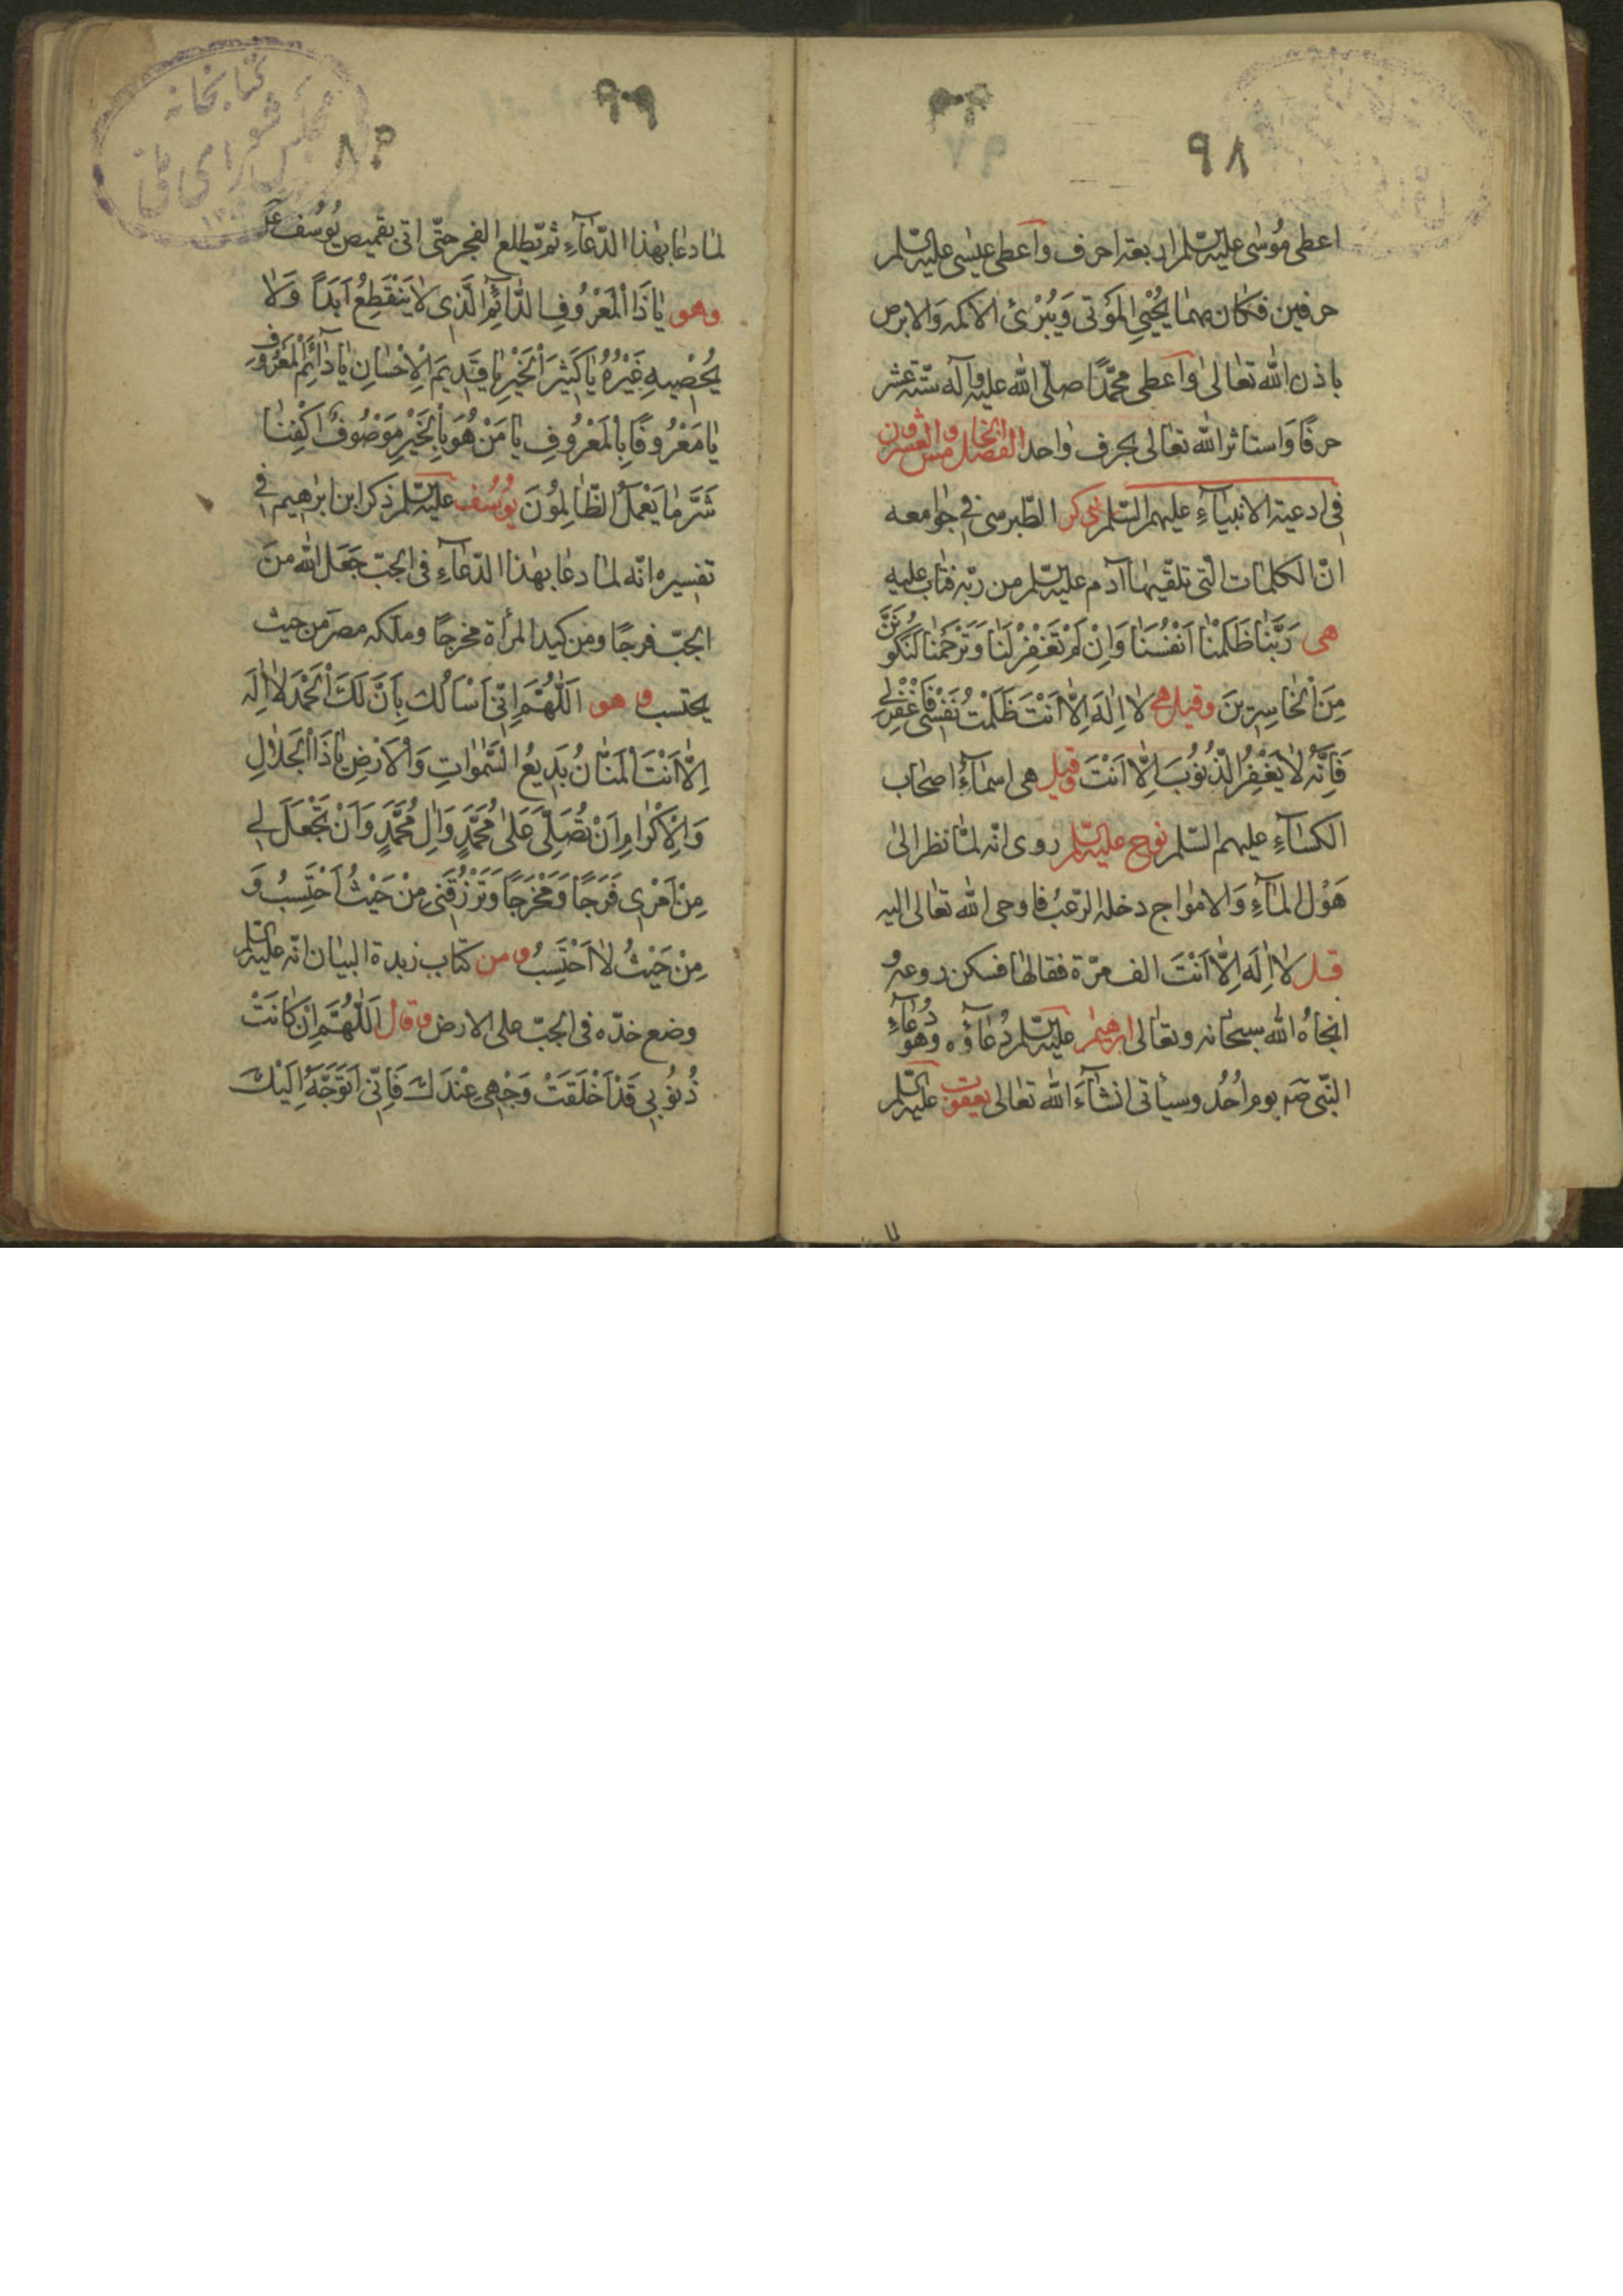 ٩٨
اعطى مُوسٰى عليه السّلم اربعة احرف واَعطى عيسٰى عليه السّلم
حرفين فكان بهما يُحْيِي المَوتى وَيُبْرئُ الاكمه وَالابرص
باذن اللّٰه تعٰالىٰ واَعطى محمّدًا صلّى اللّٰه عليه وآله ستّة عشر
حرفًا وَاستاثر اللّٰه تعٰالى بحرف وٰاحد الفصل الخامس والعشرون
فى ادعية الانبيَآءِ عليهم السّلم ذكر الطّبرسى فى جوٰامعه
انّ الكلمٰات الّتى تلقّيهٰا آدم عليه السّلم من ربّه فتٰاب عليه
هى رَبَّنٰا ظَلَمْنٰا اَنْفُسَنٰا وَاِنْ لَمْ تَغْفِرْ لَنٰا وَتَرْحَمْنٰا لَنَكُونَنَّ
مِنَ الْخٰاسِرينَ وقيل هى لٰا اِلٰهَ اِلّٰا اَنْتَ ظَلَمْتُ نَفْسى فَاغْفِرْلى
فَاِنَّهُ لٰا يَغْفِرُ الذُّنُوْبَ اِلّٰا اَنْتَ وقيل هى اسمٰآءُ اصحٰاب
الكسٰآءِ عليهم السّلم نوح عليه السّلم روى انّه لمّٰا نظر الىٰ
هَوْل المٰآءِ وَالامْوٰاج دخله الرّعبُ فاوحى اللّٰه تعٰالى اليه
قل لٰا اِلٰهَ اِلّٰا اَنْتَ الف مرّة فقالهٰا فسكن روعه و
انجٰاهُ اللّٰه سبحٰانه وتعٰالى ابرهيم عليه السّلم دُعٰآؤه وهو دُعٰآءِ
النّبى صم يوم اُحُد وسيأتى انشٰآءَ اللّٰه تعٰالى يعقوب عليه السّلم
٩٩
٨٠
كتابخانه
مجلس شوراى ملى
لمٰا دعٰا بهٰذا الدّعٰآءِ ثم يطلع الفجر حتّى اتى بقميص يُوسُف
وهو يٰا ذَا الْمَعْرُوفِ الدّٰائِمِ الَّذى لٰا يَنْقَطِعُ اَبَدًا وَلٰا
يُحْصيهِ غَيْرُهُ يٰا كَثيرَ الْخَيْرِ يٰا قَديمَ الْاِحْسٰانِ يٰا دٰائِمَ الْمَعْرُوفِ
يٰا مَعْرُوفًا بِالْمَعْرُوفِ يٰا مَنْ هُوَ بِالْخَيْرِ مَوْصُوفٌ اكْفِنٰا
شَرَّ مٰا يَعْمَلُ الظّٰالِمُوْنَ يُوسُف عليه السّلم ذكر ابن ابرٰهيم فى
تفسيره انّه لمٰا دعٰا بهٰذا الدّعٰآءِ فى الجبّ جَعَل اللّٰه منَ
الجبّ فرجًا ومن كيد المرأة مخرجًا وملّكه مصرَ من حيث
يحتسب و هو اَللّٰهُمَّ اِنّى اَسْاَلُكَ بِاَنَّ لَكَ الْحَمْدَ لٰا اِلٰهَ
اِلّٰا اَنْتَ الْمَنّٰانُ بَديعُ السَّمٰوٰاتِ وَالْاَرْضِ يٰا ذَا الْجَلٰالِ
وَالْاِكْرٰامِ اَنْ تُصَلِّىَ عَلىٰ مُحَمَّدٍ وَاٰلِ مُحَمَّدٍ وَاَنْ تَجْعَلَ لى
مِنْ اَمْرى فَرَجًا وَمَخْرَجًا وَتَرْزُقَنى مِنْ حَيْثُ اَحْتَسِبُ وَ
مِنْ حَيْثُ لٰا اَحْتَسِبُ و من كتٰاب زبدة البيٰان انّه عليه السّلم
وضع خدّه فى الجبّ على الارض و قال اَللّٰهُمَّ اِنْ كٰانَتْ
ذُنُوْبى قَدْ اَخْلَقَتْ وَجْهى عِنْدَكَ فَاِنّى اَتَوَجَّهُ اِلَيْكَ